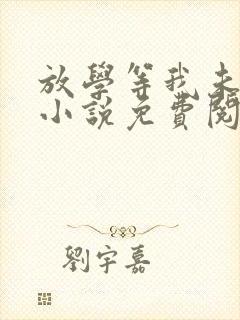 放學等我未
小說免費閱
劉宇嘉